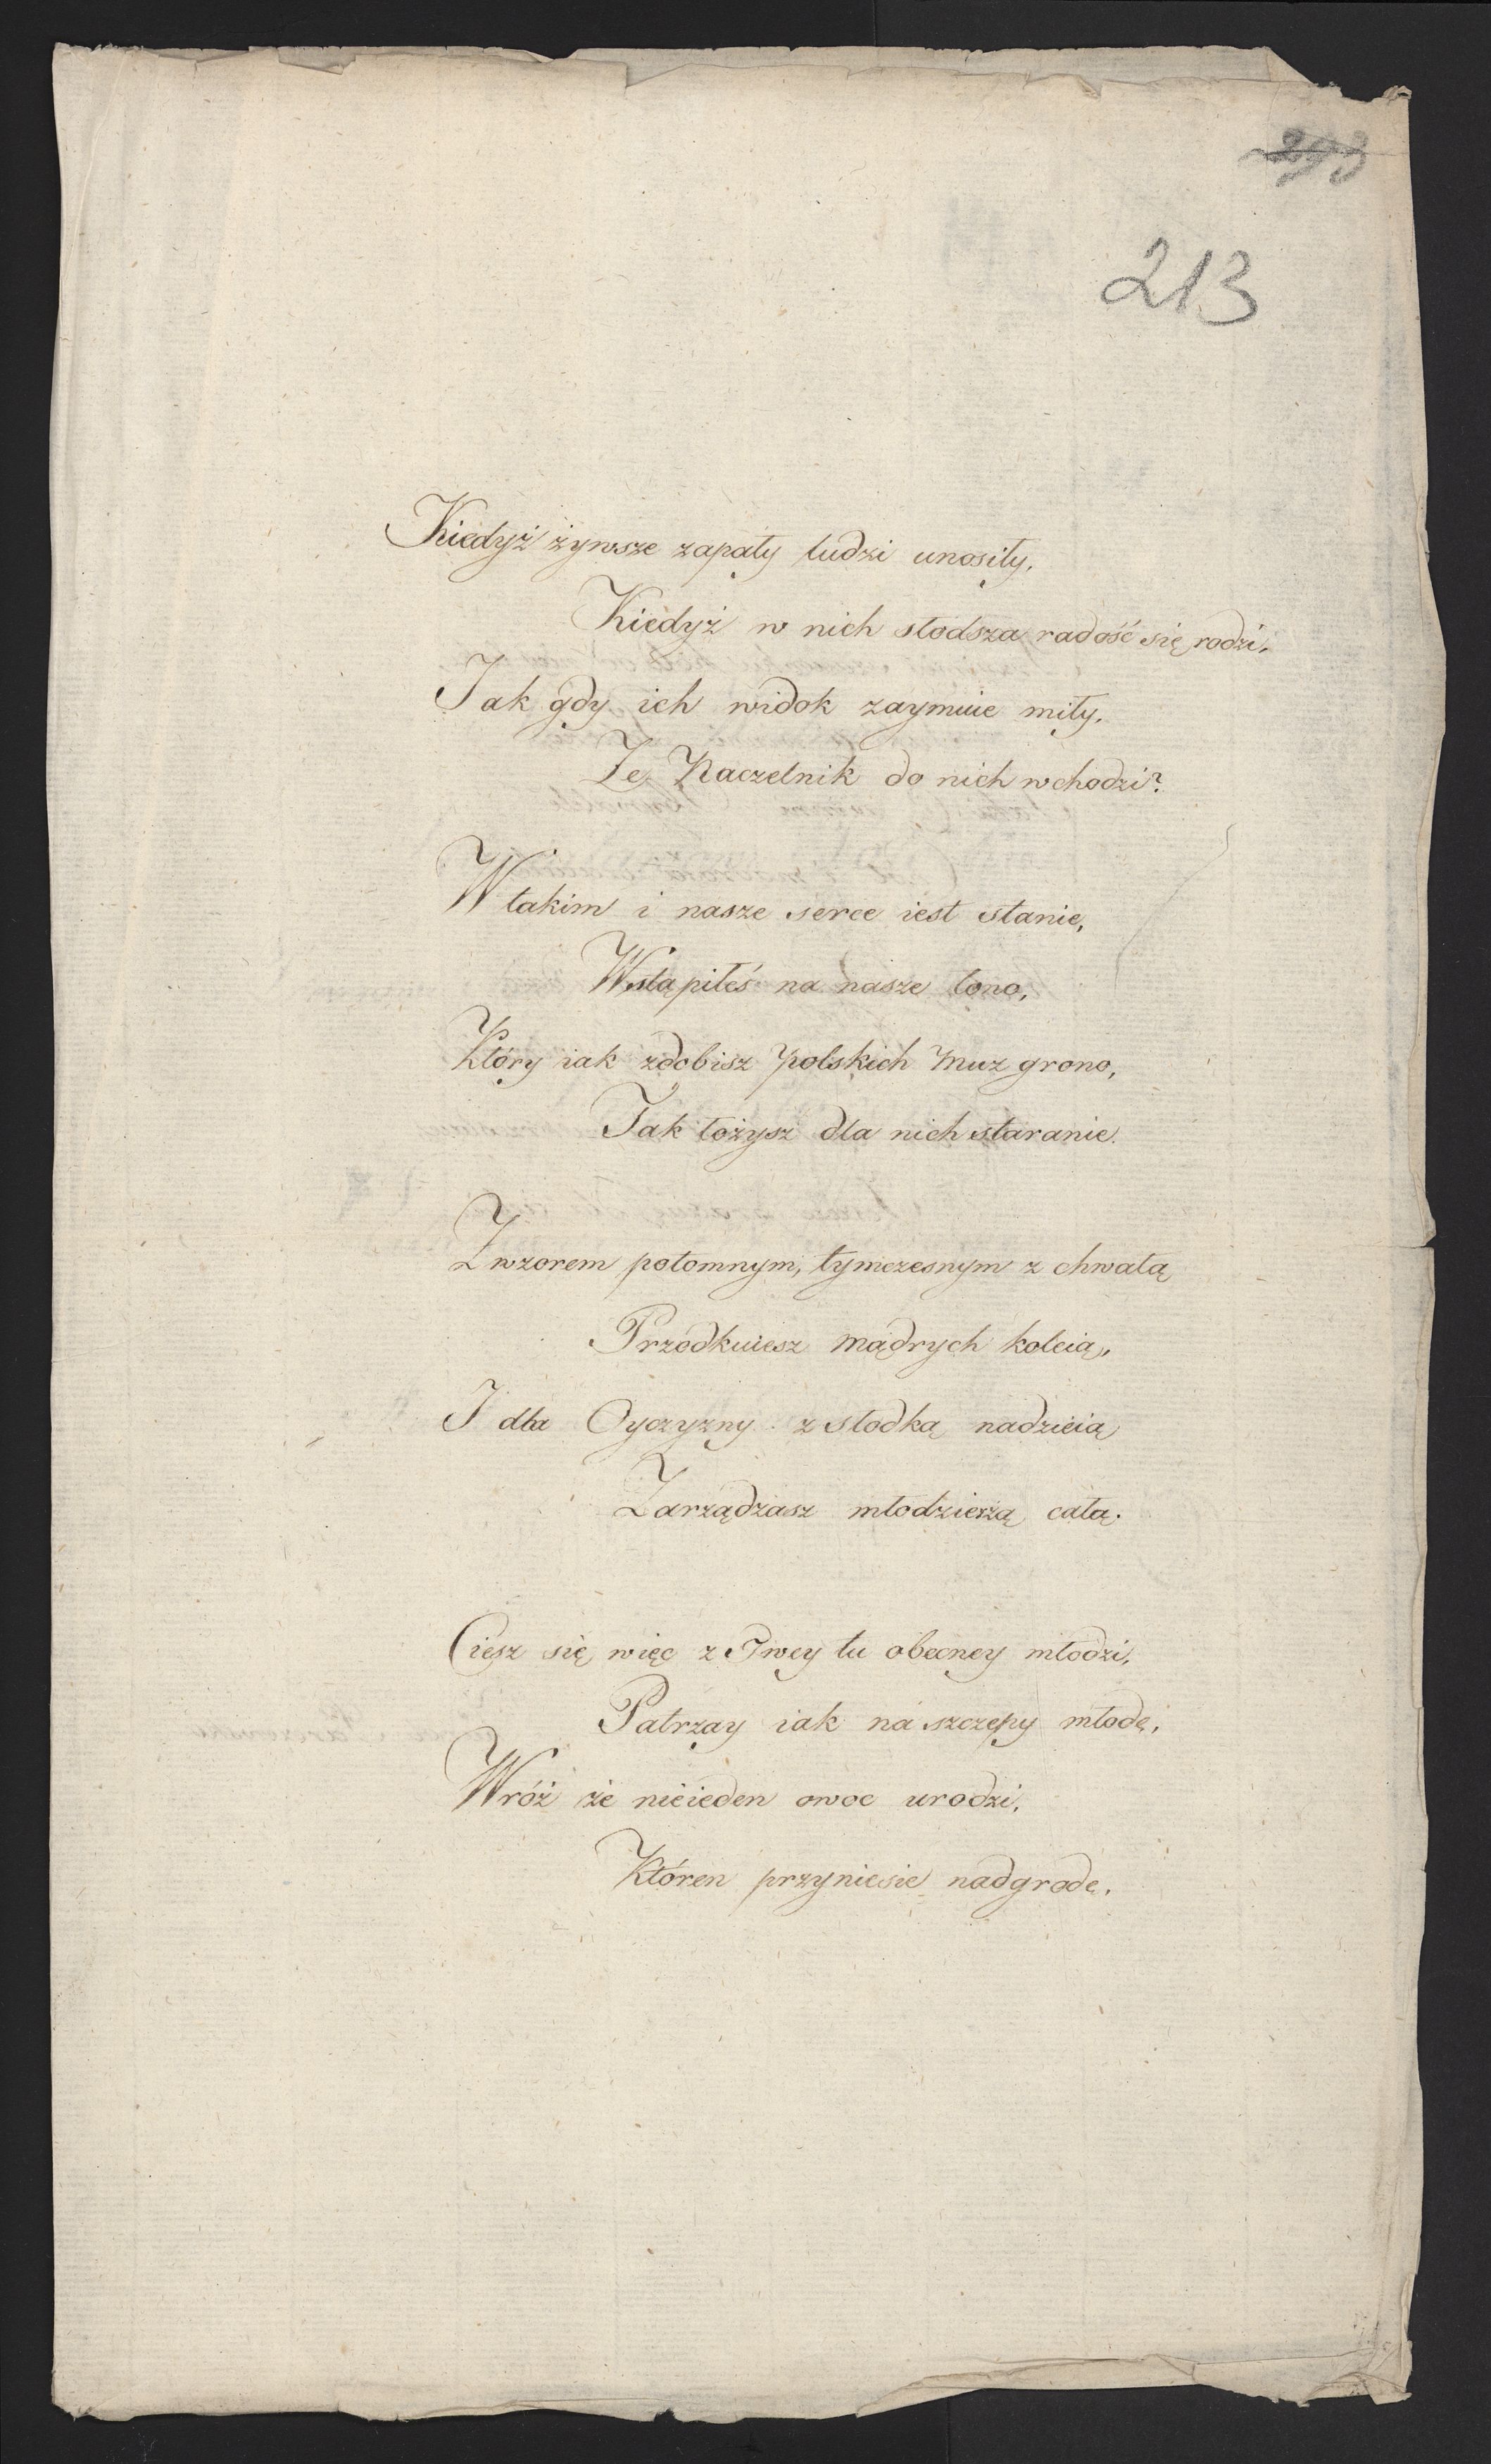 213
Kiedyż żywsze zapały ludzi unosiły,
Kiedyż w nich słodsza radość się rodzi,
Jak gdy ich widok zaymuie miły,
Że Naczelnik do nich wchodzi?
W takim i nasze serce iest stanie,
Wstąpiłeś na nasze łono,
Który iak zdobisz polskich Muz grono,
Tak łożysz dla nich staranie.
Z wzorem potomnym, tymczesnym z chwałą
Przodkuiesz Mądrych koleią,
I dla Oyczyzny z słodką nadzieią
Zarządzasz młodzieżą całą.
Ciesz się więc z Twey tu obecney młodzi,
Patrzay iak na szczepy młode,
Wróż że nieieden owoc urodzi,
Któren przyniesie nadgrodę.